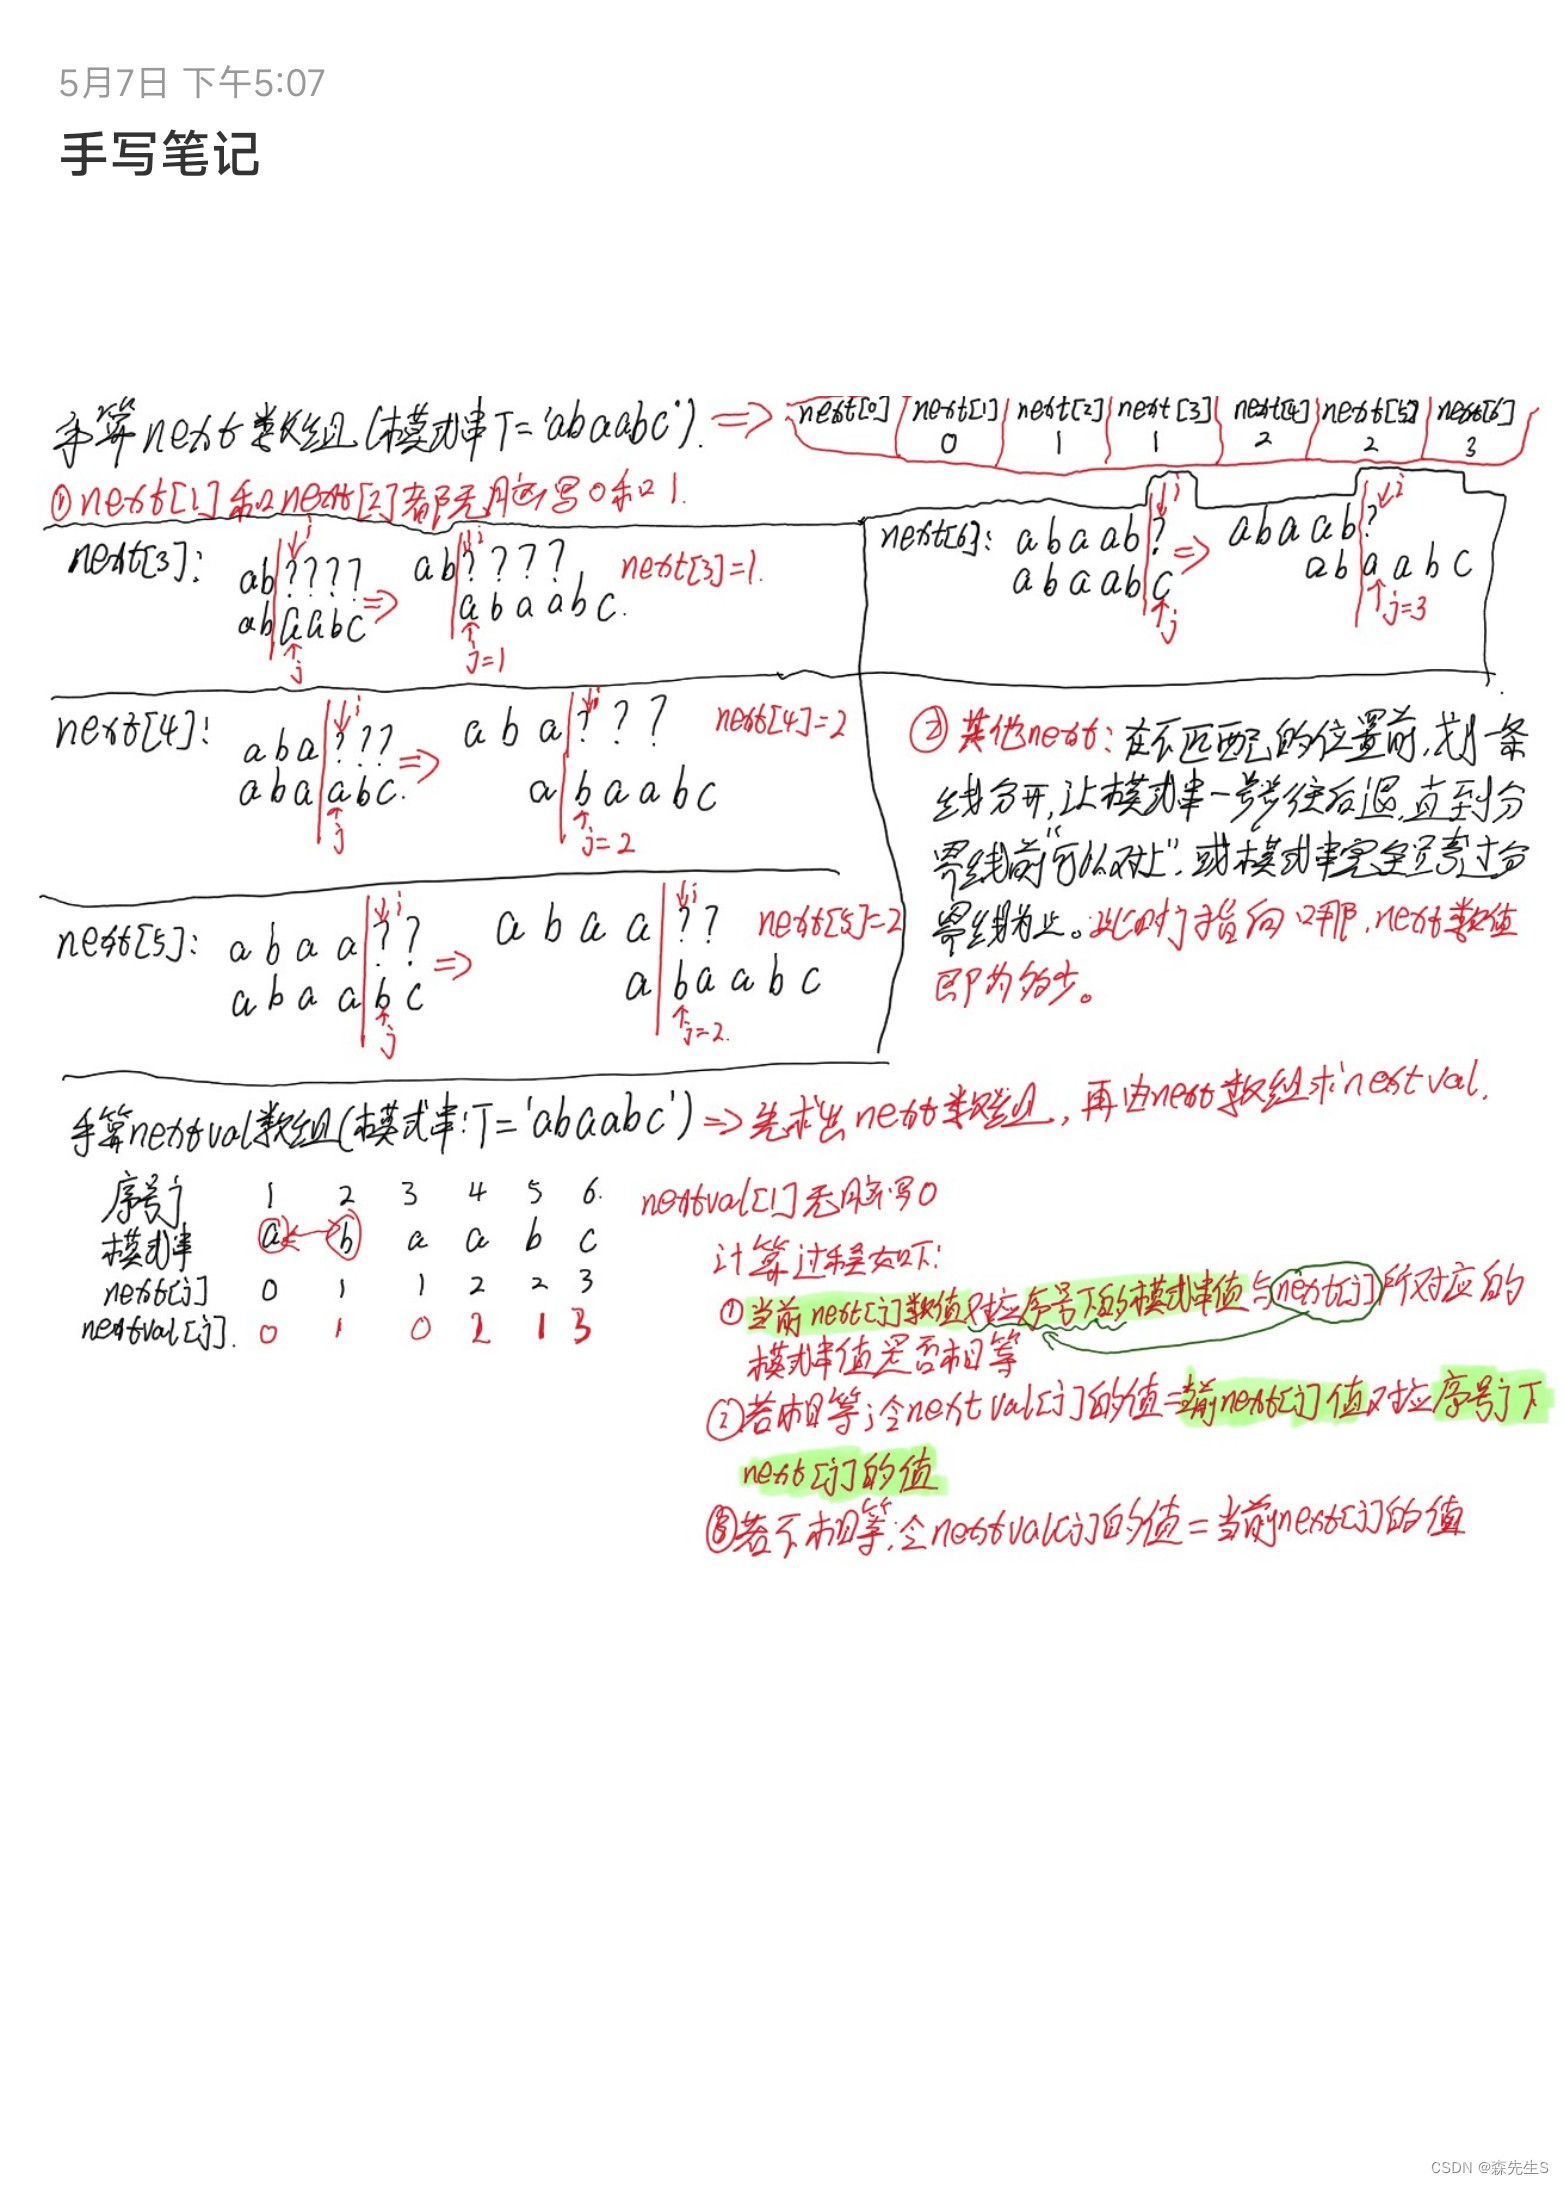 5月7日 下午5:07
手写笔记
手算next数组(模式串T='abaabc'). => next[0] next[1] next[2] next[3] next[4] next[5] next[6]
0 1 1 2 2 3
①next[1]和next[2]都无脑写0和1.
next[3]:
i
ab|????
ab|aabc
j
=>
i
ab|????
abaabc.
j=1
next[3]=1.
next[6]:
i
abaab|?
abaab|c
j
=>
i
abaab?
ab|aabc
j=3
next[4]:
i
aba|???
aba|abc.
j
=>
i
aba|???
a|baabc
j=2
next[4]=2
②其他next:在不匹配的位置前,划一条
线分开,让模式串一步步往后退,直到分
界线前"可以对上",或模式串完全跨过分
界线为止。此时j指向哪,next数值
即为多少。
next[5]:
i
abaa|??
abaa|bc
j
=>
i
abaa|??
a|baabc
j=2.
next[5]=2
手算nextval数组(模式串:T='abaabc') => 先求出next数组,再由next数组求nextval.
序号j 1 2 3 4 5 6.
模式串 a b a a b c
next[j] 0 1 1 2 2 3
nextval[j]. 0 1 0 2 1 3
nextval[1]无脑写0
计算过程如下:
①当前next[j]数值对应序号下的模式串值与next[j]所对应的
模式串值是否相等
②若相等;令nextval[j]的值=当前next[j]值对应序号j下
next[j]的值
③若不相等;令nextval[j]的值=当前next[j]的值
CSDN @森先生S